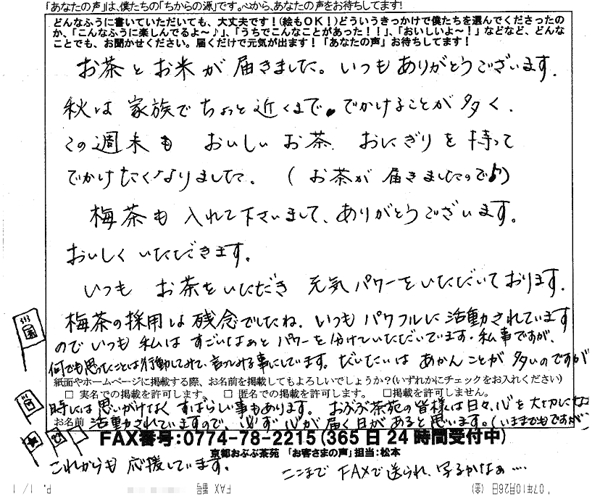 「あなたの声」は、僕たちの「ちからの源」です。心から、あなたの声お待ちしてます!
どんなふうに書いていただいても、大丈夫です!(絵もOK!)どういうきっかけで僕たちを選んでくださったの
か、「こんなふうに楽しんでるよ~♪」、「うちでこんなことがあった!!」、「おいしいよ~!」などなど、どんな
ことでも、お聞かせください。届くだけで元気が出ます!「あなたの声」お待ちしてます!
お茶とお米が届きました。いつもありがとうございます.
秋は家族でちょっと近くまででかけることが多く.
この週末も おいしいお茶 おにぎりを持って
でかけたくなりました。(お茶が届きましたので♪)
梅茶も入れて下さいまして、ありがとうございます。
おいしくいただきます。
いつも お茶をいただき 元気パワーをいただいております.
梅茶の採用は残念でしたね。いつもパワフルに活動されています
のでいつも私はすごいなぁとパワーを分けていただいています・私事ですが、
何でも思ったことは行動してみて、言ってみる事にしています。だいたいは あかんことが多いのですが
紙面やホームページに掲載する際、お名前を掲載してもよろしいでしょうか?(いずれかにチェックをお入れください)
□ 実名での掲載を許可します。 □ 匿名での掲載を許可します。 □掲載を許可しません。
時には思いがけなく すばらしい事もあります。おぶぶ茶苑の皆様は日々、心を大切に
お名前 活動されていますので、必ず心が届く日があると思います。(いままでもですが)
FAX番号:0774-78-2215(365日24時間受付中)
京都おぶぶ茶苑 「お客さまの声」担当:松本
これからも 応援しています。
ここまで FAXで送られ、写るかなぁ…
'07年10月26日(金)
FAX 番号
P. 1/1